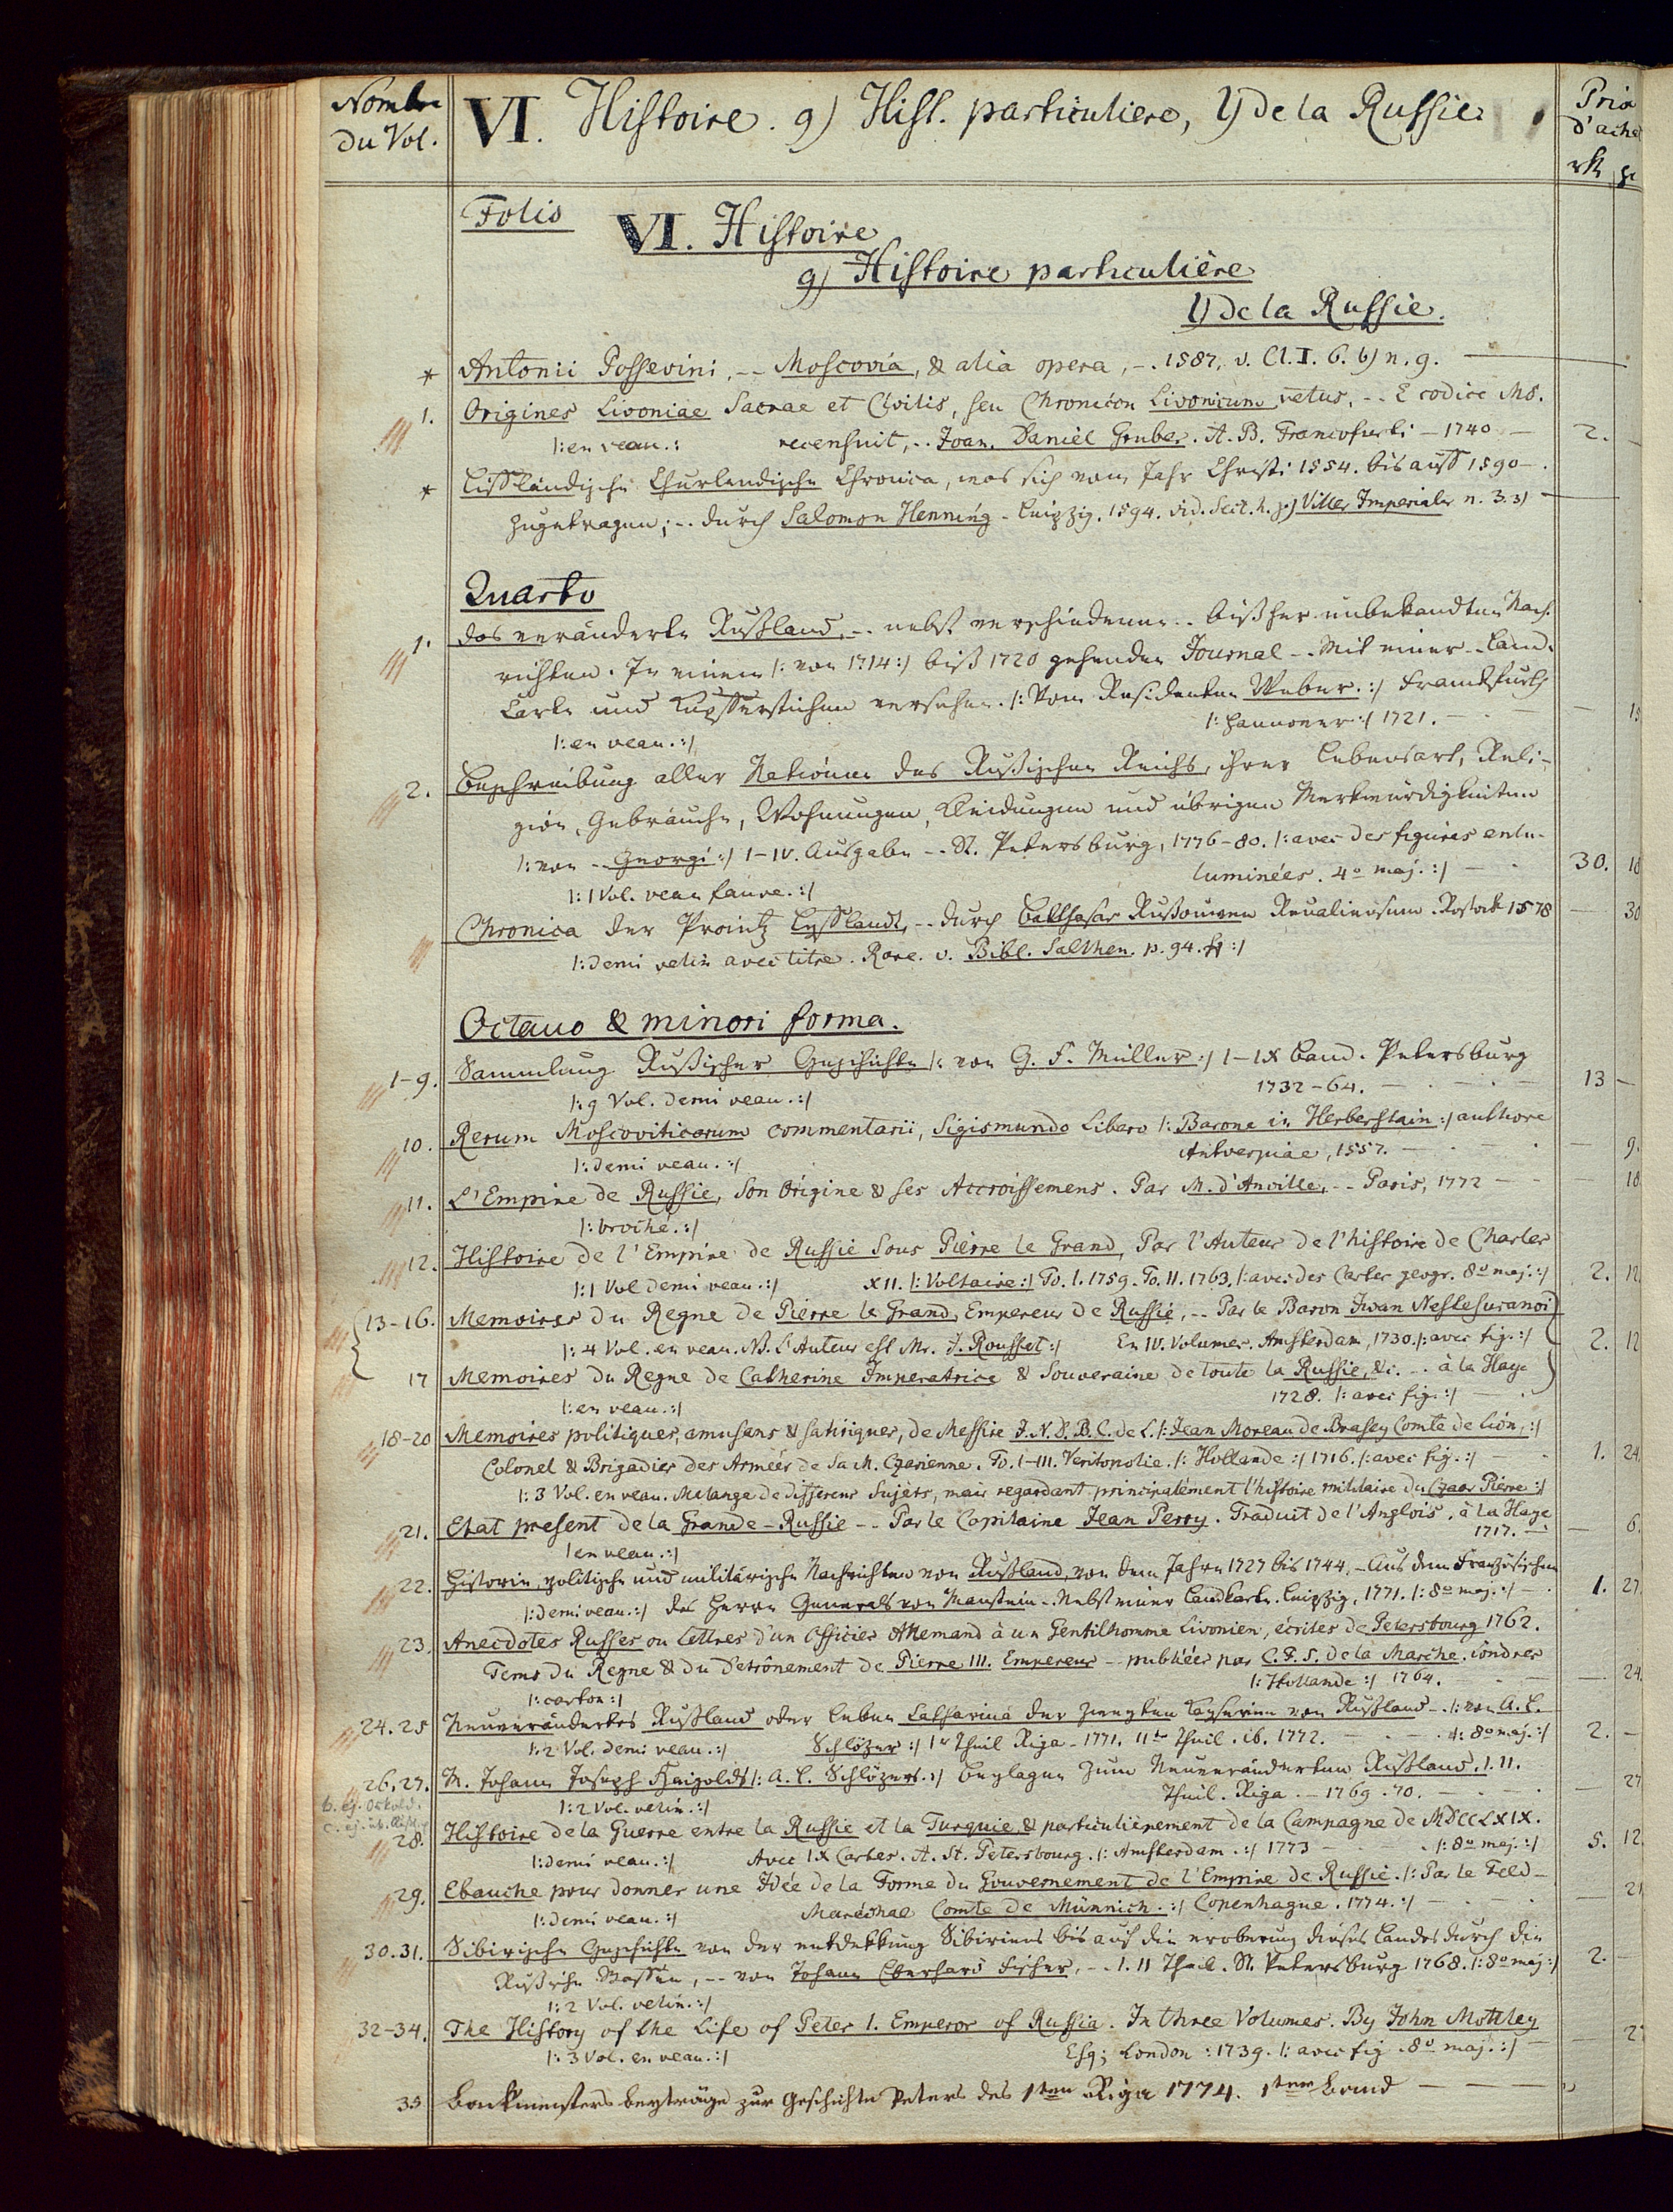 Nombre
du Vol.
VI. Histoire. g) Hist. particuliere, l) de la Russie.
Prix
d'achet
Folio
VI. Histoire
g) Histoire particulière
l) de la Russie.
* Antonii Possevini, -- Moscovia, & alia opera, -. 1587. v. Cl. I. 6. b) n. 9.
1. Origines Livoniae Sacrae et Civilis, seu Chronicon Livonicum vetus, -- E codice Ms.
|: en veau. :| recensuit, -- Joan. Daniel Gruber. A. B. Francofurti - 1740 - 2. -
* Liffländische Churlendische Chronica, was sich vom Jahr Christi 1554. bis auff 1590 -.
zugetragen; -- durch Salomon Henning - Leipzig. 1594. vid. Sect. h. p) Villes Imperiales n. 3. 3)
Quarto
1. das veränderte Rußland, -- nebst verschiedenen -- bißher unbekandten Nach-
richten. In einem |: von 1714 :| biß 1720 gehenden Journal -- Mit einer -- Land-
Carte und Kupfferstichen versehen. |: Vom Residenten Weber. :| Franckfurth
|: en veau. :| |: Hannover :| 1721.
2. Beschreibung aller Nationen des Rußischen Reichs, ihrer Lebensart, Reli-
gion, Gebräuche, Wohnungen, Kleidungen und übrigen Merkwürdigkeiten
|: von -- Georgi :| 1-IV. Ausgabe -- St. Petersburg, 1776-80. |: avec des figures enlu-
|: 1 Vol. veau fauve. :| luminées. 4º maj. :| 30. 18
Chronica der Prointz Lyfflandt, -- durch Balthasar Rußouwen Revaliensem. Rostock 1578 - 30
|: demi velin avec titre. Rare. v. Bibl. Salthen. p. 94. :|
Octavo & minori forma.
1-9. Sammlung Rußischer Geschichte |: von G. F. Müller :| 1-IX Band. Petersburg
|: 9 Vol. demi veau. :| 1732-64. 13 -
10. Rerum Moscoviticarum commentarii, Sigismundo Libero |: Barone in Herberstain :| authore
|: demi veau. :| Antverpiae, 1557. - 9.
11. L'Empire de Russie, Son Origine & ses Accroissemens. Par M. d'Anville, -- Paris, 1772 - 18
|: broché. :|
12. Histoire de l'Empire de Russie Sous Pierre le Grand, Par l'Auteur de l'histoire de Charles
|: 1 Vol demi veau. :| XII. |: Voltaire :| To. I. 1759. To. II. 1763. |: avec des Cartes geogr. 8º maj. :| 2. 12
13-16. Memoires du Regne de Pierre le Grand, Empereur de Russie, -- Par le Baron Iwan Nestesuranoi
|: 4 Vol. en veau. NB. L'Auteur est Mr. J. Rousset :| En IV. Volumes. Amsterdam, 1730. |: avec fig. :| 2. 12
17 Memoires du Regne de Catherine Imperatrice & Souveraine de toute la Russie, &c. -- à la Haye
|: en veau. :| 1728. |: avec fig. :|
18-20 Memoires politiques, amusans & satiriques, de Messire J. N. D. B. C. de L. |: Jean Moreau de Brasey Comte de Lion, :|
Colonel & Brigadier des Armées de Sa M. Czarienne. To. I-III. Veritopolie. |: Hollande :| 1716. |: avec fig. :| 1. 24
|: 3 Vol. en veau. Melange de differens Sujets, mais regardant principalement l'histoire militaire du Czaar Pierre :|
21. Etat present de la Grande-Russie -- Par le Capitaine Jean Perry. Traduit de l'Anglois, à la Haye
|: en veau. :| 1717. - 6.
22. Historie, politische und militärische Nachrichten von Rußland, von dem Jahre 1727 bis 1744, - Aus dem Französischen
|: demi veau. :| des Herrn Generals von Manstein - Nebst einer Landkarte. Leipzig, 1771. |: 8º maj. :| 1. 27
23. Anecdotes Russes ou Lettres d'un Officier Allemand à un Gentilhomme Livonien, écrites de Petersbourg 1762.
Tems du Regne & du Detrônement de Pierre III. Empereur - publiées par C. F. S. de la Marche. Londres
|: carton :| |: Hollande :| 1764. - 24
24. 25 Neuverändertes Rußland oder Leben Catharinä der Zweyten Kayserinn von Rußland - |: von A. L.
|: 2 Vol. demi veau. :| Schlözer :| 1r Theil Riga - 1771. IIte Theil. ib. 1772. 8º maj. :| 2. -
26. 27. M. Johann Joseph Haigolds |: A. L. Schlözers. :| Beylagen zum Neuveränderten Rußland. I. II.
|: 2 Vol. velin. :| Theil. Riga. - 1769. 70. - 27
28. Histoire de la Guerre entre la Russie et la Turquie, & particulierement de la Campagne de MDCCLXIX.
|: demi veau. :| Avec IX Cartes. A. St. Petersbourg. |: Amsterdam. :| 1773 |: 8º maj. :| 5. 12
29. Ebauche pour donner une Idée de la Forme du Gouvernement de l'Empire de Russie. |: Par le Feld-
|: demi veau. :| Maréchal Comte de Münnich. :| Copenhague. 1774. :| - 21
30. 31. Sibirische Geschichte von der entdekkung Sibiriens bis auf die eroberung dieses Landes durch die
Rußische Waffen, -- von Johann Eberhard Fischer, -- I. II Theil. St. Petersburg 1768. |: 8º maj :| 2. -
|: 2 Vol. velin. :|
32-34. The History of the Life of Peter I. Emperor of Russia. In three Volumes. By John Mottley
|: 3 Vol. en veau. :| Esq; London : 1739. |: avec fig. 8º maj. :| - 27
35 Backmeisters beyträge zur Geschichte Peters des 1ten Riga 1774. 1ter Band